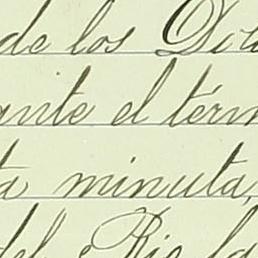 de los Do
ante el térm
a minuta,
del Rio la